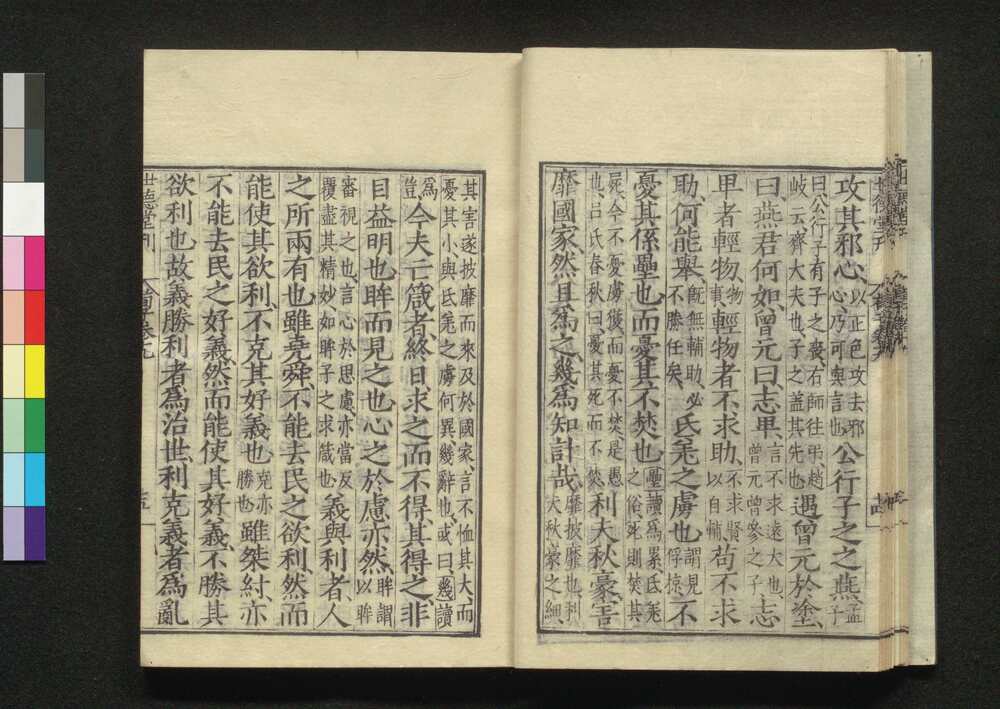 攻其邪心以正色攻去邪心乃可與言也公行子之之燕孟子
曰公行子有子之喪右師往弔趙岐云齊大夫也子之蓋其先也遇曾元於塗
曰燕君何如曾元曰志卑言不求遠大也曾元曾參之子志
卑者輕物物事輕物者不求助不求賢以自輔苟不求
助何能舉既無輔助必不勝任矣氐羌之虜也謂見俘掠不
憂其係壘也而憂其不焚也壘讀為累氐羌之俗死則焚其
死今不憂虜獲而憂不焚是愚也呂氏春秋曰憂其死而不焚利夫秋豪害
靡國家然且爲之幾爲知計哉靡披靡也利夫秋豪之細
其害遂披靡而來及於國家言不恤其大而憂其小與氐羌之虜何異幾辭也或曰幾讀
爲豈今夫亡箴者終日求之而不得其得之非
目益明也眸而見之也心之於慮亦然眸謂以眸
審視之也言心於思慮亦當反覆盡其精妙如眸子之求箴也義與利者人
之所兩有也雖堯舜不能去民之欲利然而
能使其欲利不克其好義也克亦勝也雖桀紂亦
不能去民之好義然而能使其好義不勝其
欲利也故義勝利者爲治世利克義者爲亂
世德堂刊